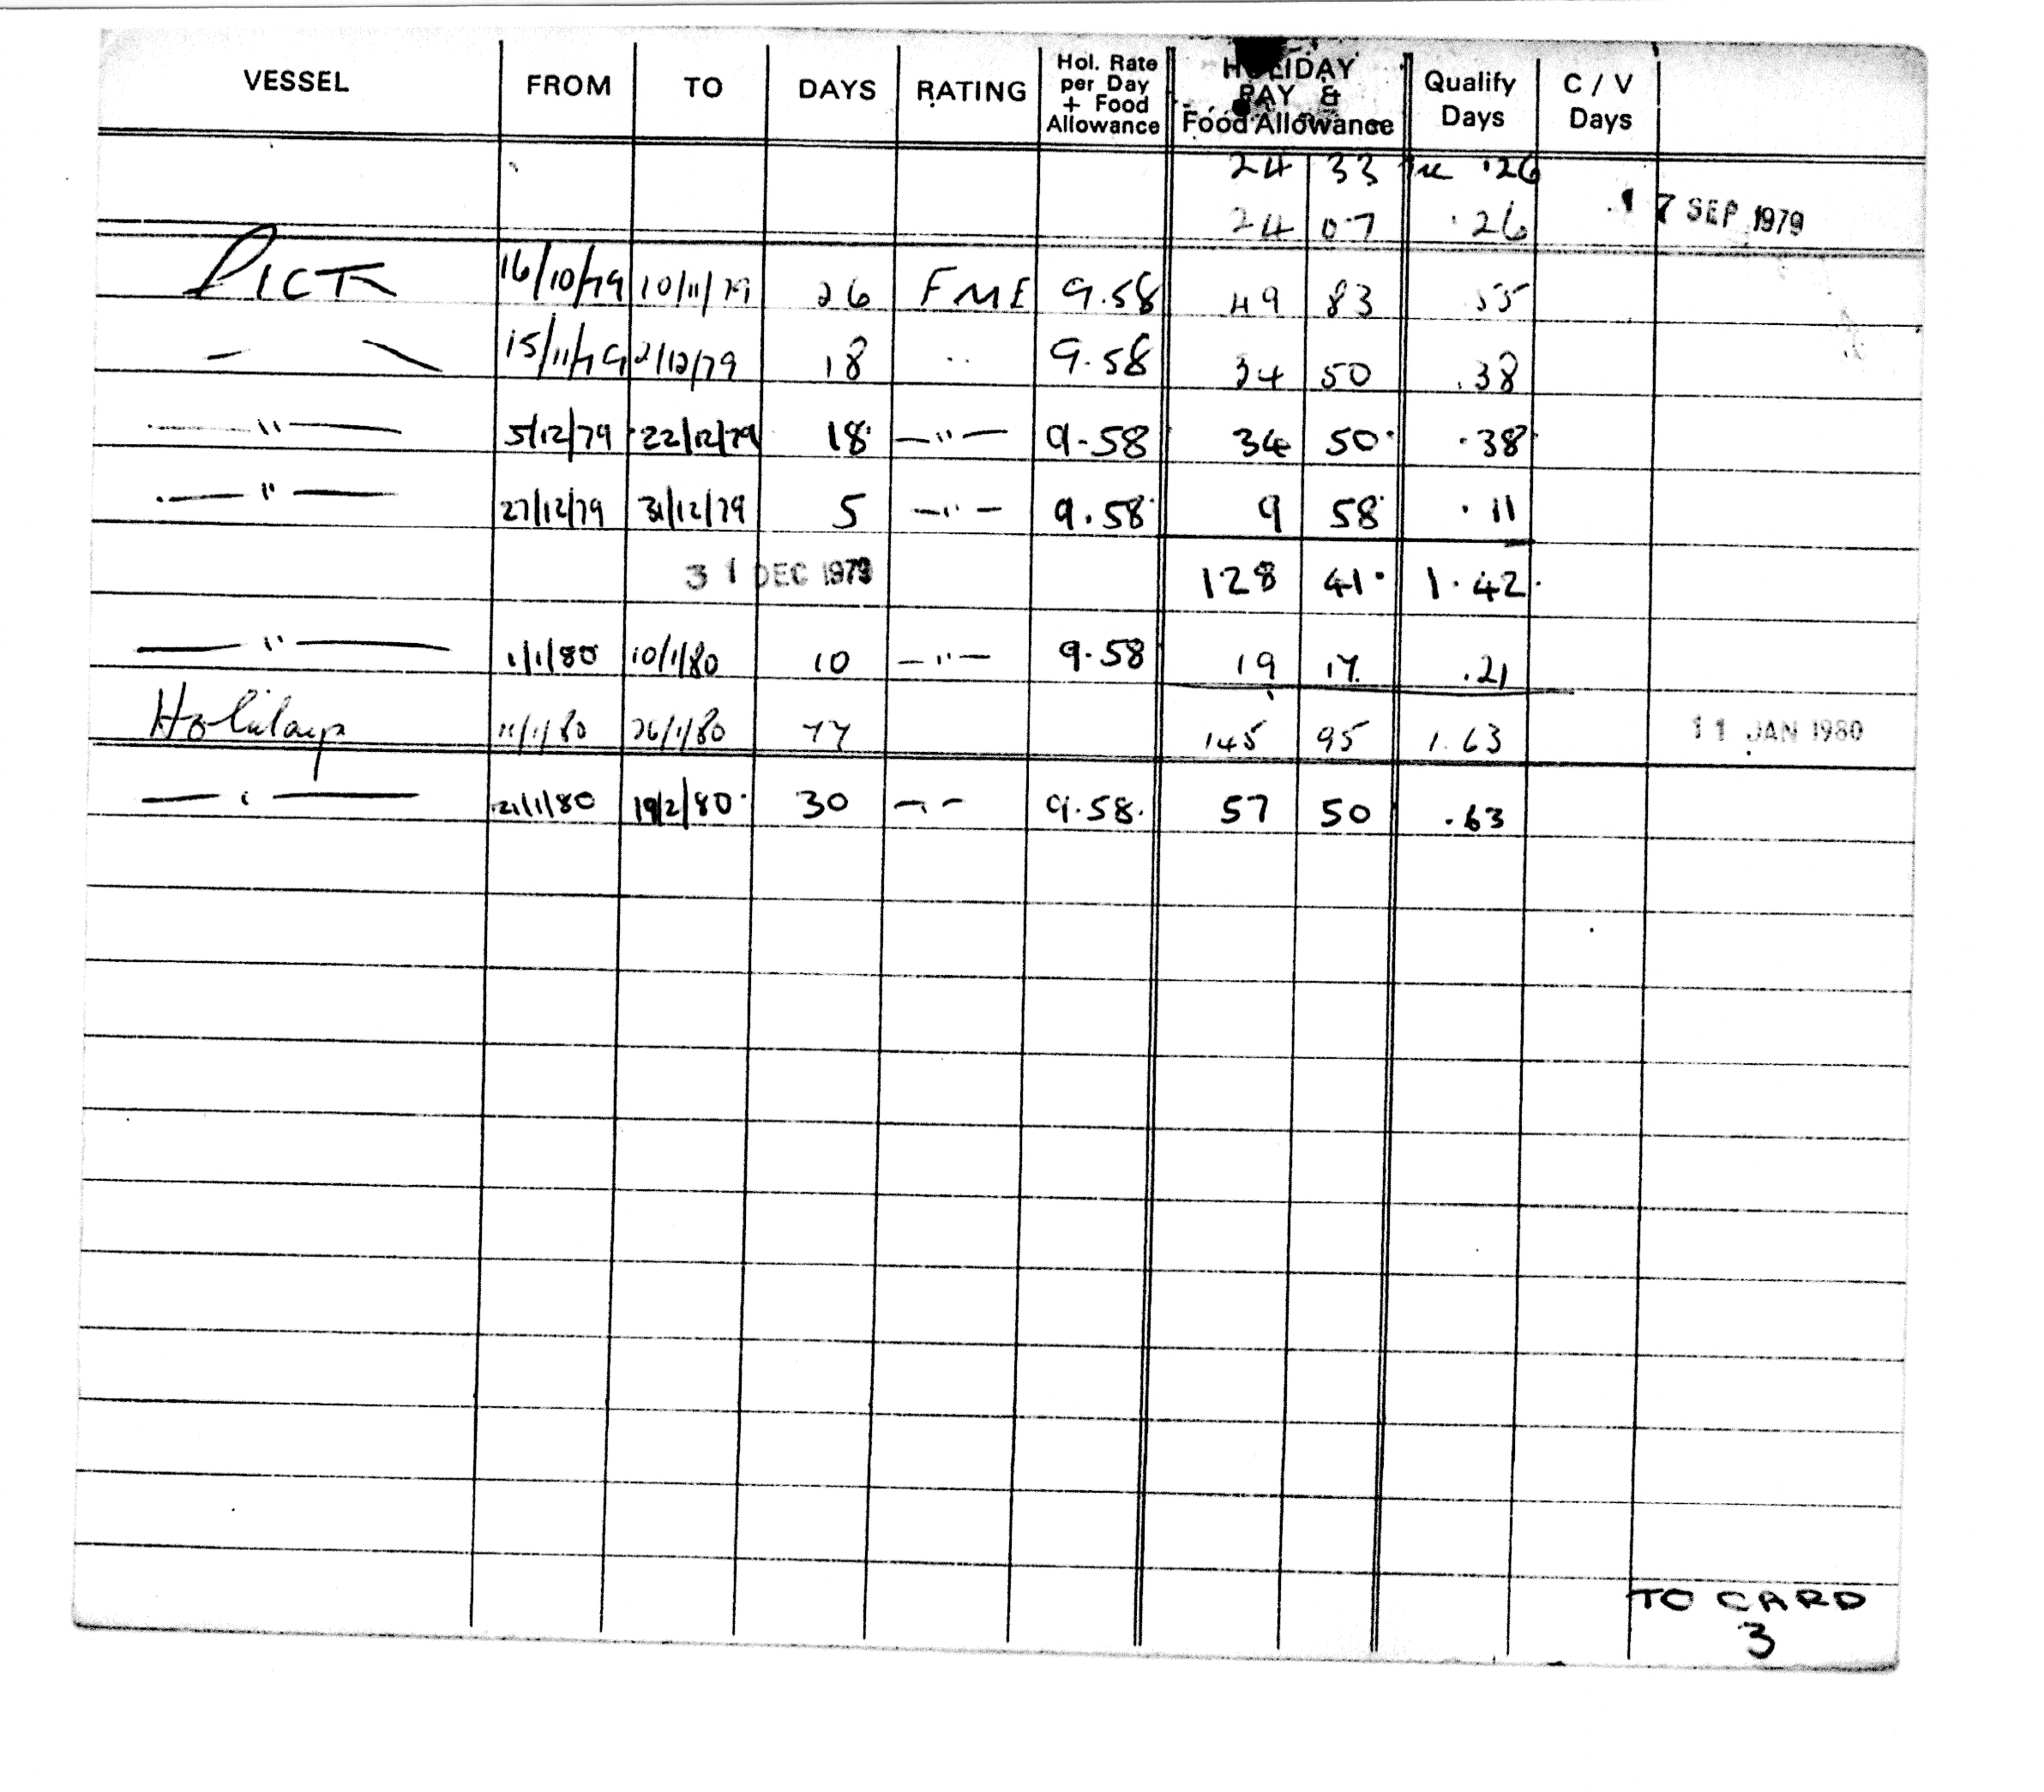 VESSEL FROM TO DAYS RATING Hol. Rate per Day + Food Allowance HOLIDAY PAY & Food Allowance Qualify Days C / V Days
24 33 .26
24 07 .26 17 SEP 1979
PICT 16/10/79 10/11/79 26 FME 9.58 49 83 .55
15/11/79 2/12/79 18 " 9.58 34 50 .38
—"— 5/12/79 22/12/79 18 —"— 9-58 34 50 .38
—"— 27/12/79 31/12/79 5 —"— 9.58 9 58 .11
31 DEC 1979 128 41 1.42
—"— 1/1/80 10/1/80 10 —"— 9.58 19 17 .21
Holidays 11/1/80 26/1/80 145 95 1.63 11 JAN 1980
—"— 21/1/80 19/2/80 30 —"— 9.58 57 50 .63
TO CARD
3